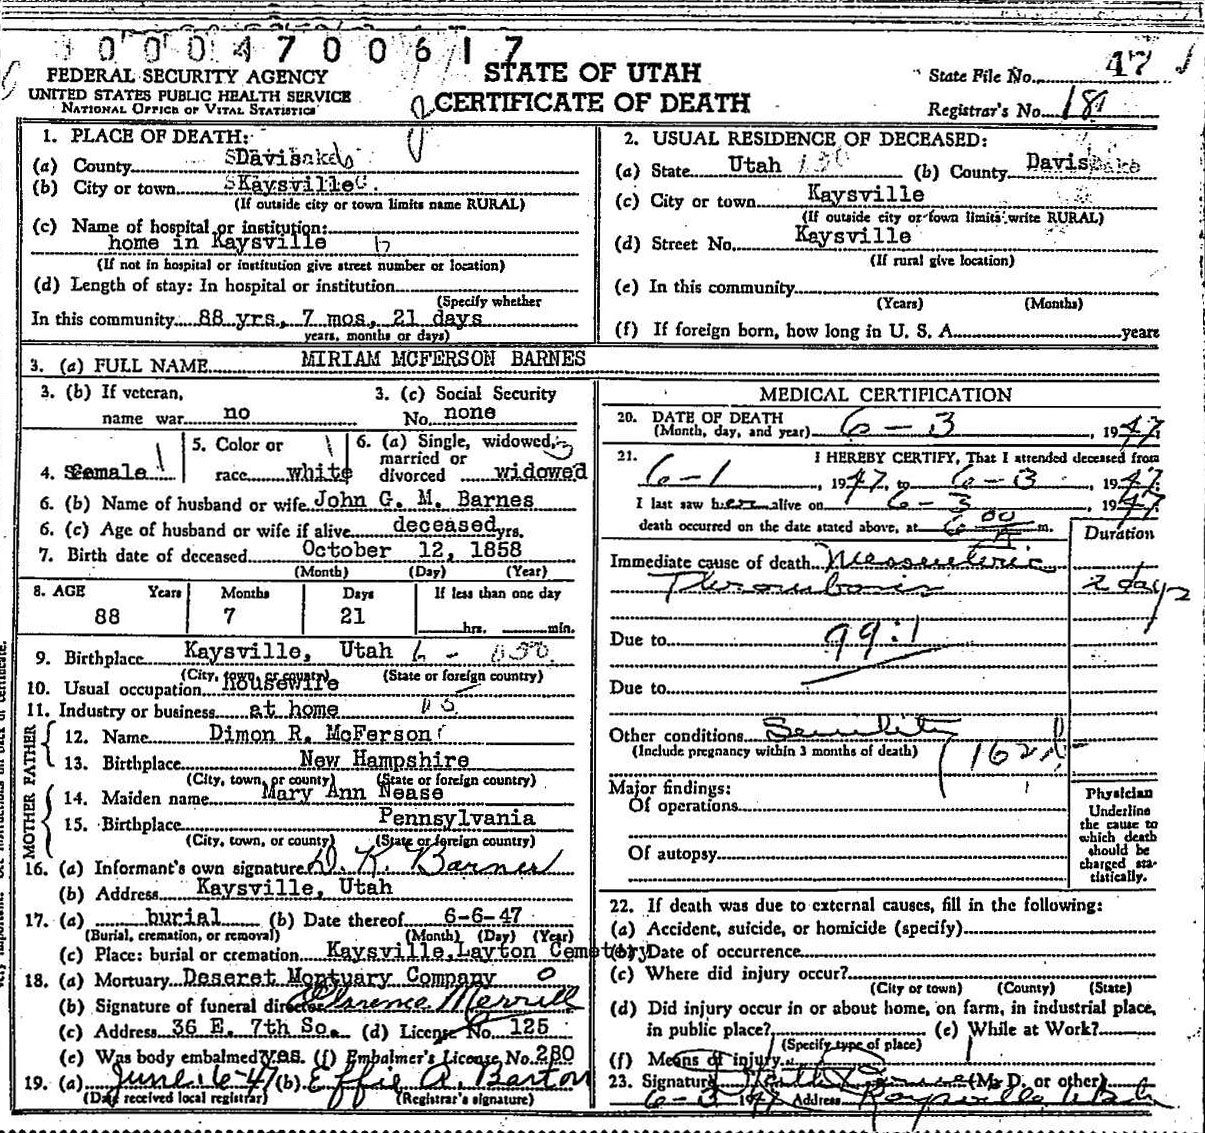 0 0 0 4 7 0 0 6 1 7
FEDERAL SECURITY AGENCY
UNITED STATES PUBLIC HEALTH SERVICE
NATIONAL OFFICE OF VITAL STATISTICS
STATE OF UTAH
CERTIFICATE OF DEATH
State File No. 47
Registrar's No. 181
1. PLACE OF DEATH:
(a) County Davis
(b) City or town Kaysville
(If outside city or town limits name RURAL)
(c) Name of hospital or institution:
home in Kaysville
(If not in hospital or institution give street number or location)
(d) Length of stay: In hospital or institution
(Specify whether
In this community 88 yrs, 7 mos, 21 days
years, months or days)
2. USUAL RESIDENCE OF DECEASED:
(a) State Utah (b) County Davis
(c) City or town Kaysville
(If outside city or town limits write RURAL)
(d) Street No. Kaysville
(If rural give location)
(e) In this community
(Years) (Months)
(f) If foreign born, how long in U. S. A. years
3. (a) FULL NAME MIRIAM MCFERSON BARNES
3. (b) If veteran,
name war no
3. (c) Social Security
No. none
4. Female
5. Color or
race white
6. (a) Single, widowed,
married or
divorced widowed
6. (b) Name of husband or wife John G. M. Barnes
6. (c) Age of husband or wife if alive deceased yrs.
7. Birth date of deceased October 12, 1858
(Month) (Day) (Year)
8. AGE Years Months Days If less than one day
88 7 21 hrs. min.
9. Birthplace Kaysville, Utah
(City, town, or county) (State or foreign country)
10. Usual occupation housewife
11. Industry or business at home
FATHER
12. Name Dimon R. McFerson
13. Birthplace New Hampshire
(City, town, or county) (State or foreign country)
MOTHER
14. Maiden name Mary Ann Nease
15. Birthplace Pennsylvania
(City, town, or county) (State or foreign country)
16. (a) Informant's own signature D. K. Barnes
(b) Address Kaysville, Utah
17. (a) burial (b) Date thereof 6-6-47
(Burial, cremation, or removal) (Month) (Day) (Year)
(c) Place: burial or cremation Kaysville, Layton Cemetery
18. (a) Mortuary Deseret Mortuary Company
(b) Signature of funeral director Clarence Merrill
(c) Address 36 E. 7th So. (d) License No. 125
(e) Was body embalmed yes. (f) Embalmer's License No. 280
19. (a) June 6-47 (b) Effie A. Barton
(Date received local registrar) (Registrar's signature)
MEDICAL CERTIFICATION
20. DATE OF DEATH
(Month, day, and year) 6-3, 1947
21. I HEREBY CERTIFY, That I attended deceased from
6-1, 1947, to 6-3, 1947
I last saw her alive on 6-3, 1947
death occurred on the date stated above, at 6 00 A m.
Duration
Immediate cause of death Messenteric
Thrombosis 2 days
Due to 99:1
Due to
Other conditions Senility
(Include pregnancy within 3 months of death)
162
Major findings:
Of operations
Of autopsy
Physician
Underline
the cause to
which death
should be
charged sta-
tistically.
22. If death was due to external causes, fill in the following:
(a) Accident, suicide, or homicide (specify)
(b) Date of occurrence
(c) Where did injury occur?
(City or town) (County) (State)
(d) Did injury occur in or about home, on farm, in industrial place,
in public place? (e) While at Work?
(Specify type of place)
(f) Means of injury
23. Signature (M. D. or other)
6-3 1947 Address Kaysville Utah